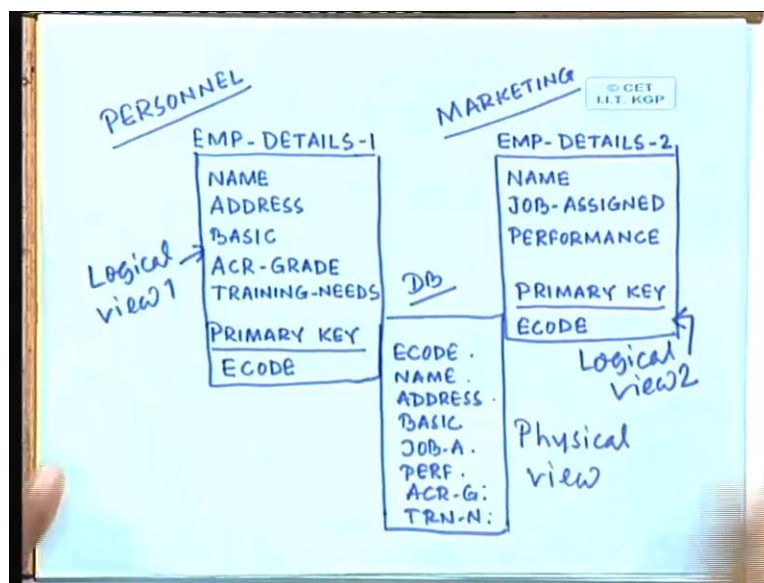 PERSONNEL
EMP-DETAILS-1
NAME
ADDRESS
BASIC
ACR-GRADE
TRAINING-NEEDS
PRIMARY KEY
ECODE
Logical
view1
MARKETING
© CET
I.I.T. KGP
EMP-DETAILS-2
NAME
JOB-ASSIGNED
PERFORMANCE
PRIMARY KEY
ECODE
Logical
view2
DB
ECODE .
NAME .
ADDRESS .
BASIC
JOB-A .
PERF .
ACR-G:
TRN-N:
Physical
view